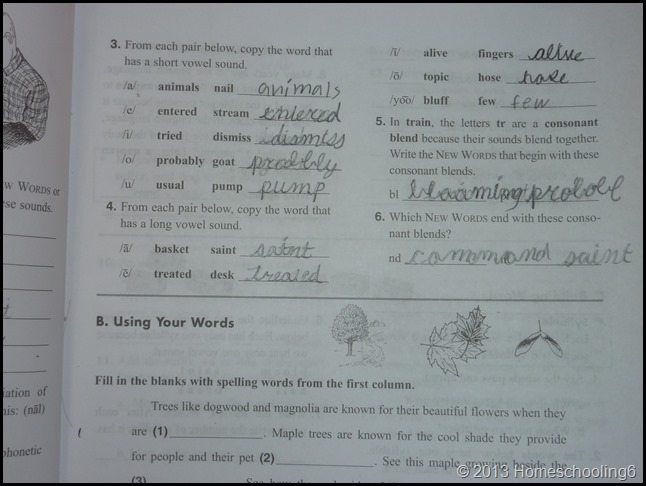 3. From each pair below, copy the word that
has a short vowel sound.
/a/ animals nail animals
/e/ entered stream entered
/i/ tried dismiss dismiss
/o/ probably goat
/u/ usual pump pump
4. From each pair below, copy the word that
has a long vowel sound.
/ā/ basket saint saint
/ē/ treated desk treated
/ī/ alive fingers alive
/ō/ topic hose hose
/yo͞o/ bluff few few
5. In train, the letters tr are a consonant
blend because their sounds blend together.
Write the NEW WORDS that begin with these
consonant blends.
bl
6. Which NEW WORDS end with these conso-
nant blends?
nd command saint
W WORDS or
ese sounds.
iation of
his: (nāl)
phonetic
B. Using Your Words
Fill in the blanks with spelling words from the first column.
Trees like dogwood and magnolia are known for their beautiful flowers when they
are (1) . Maple trees are known for the cool shade they provide
for people and their pet (2) . See this maple growing beside the
(3)
© 2013 Homeschooling6